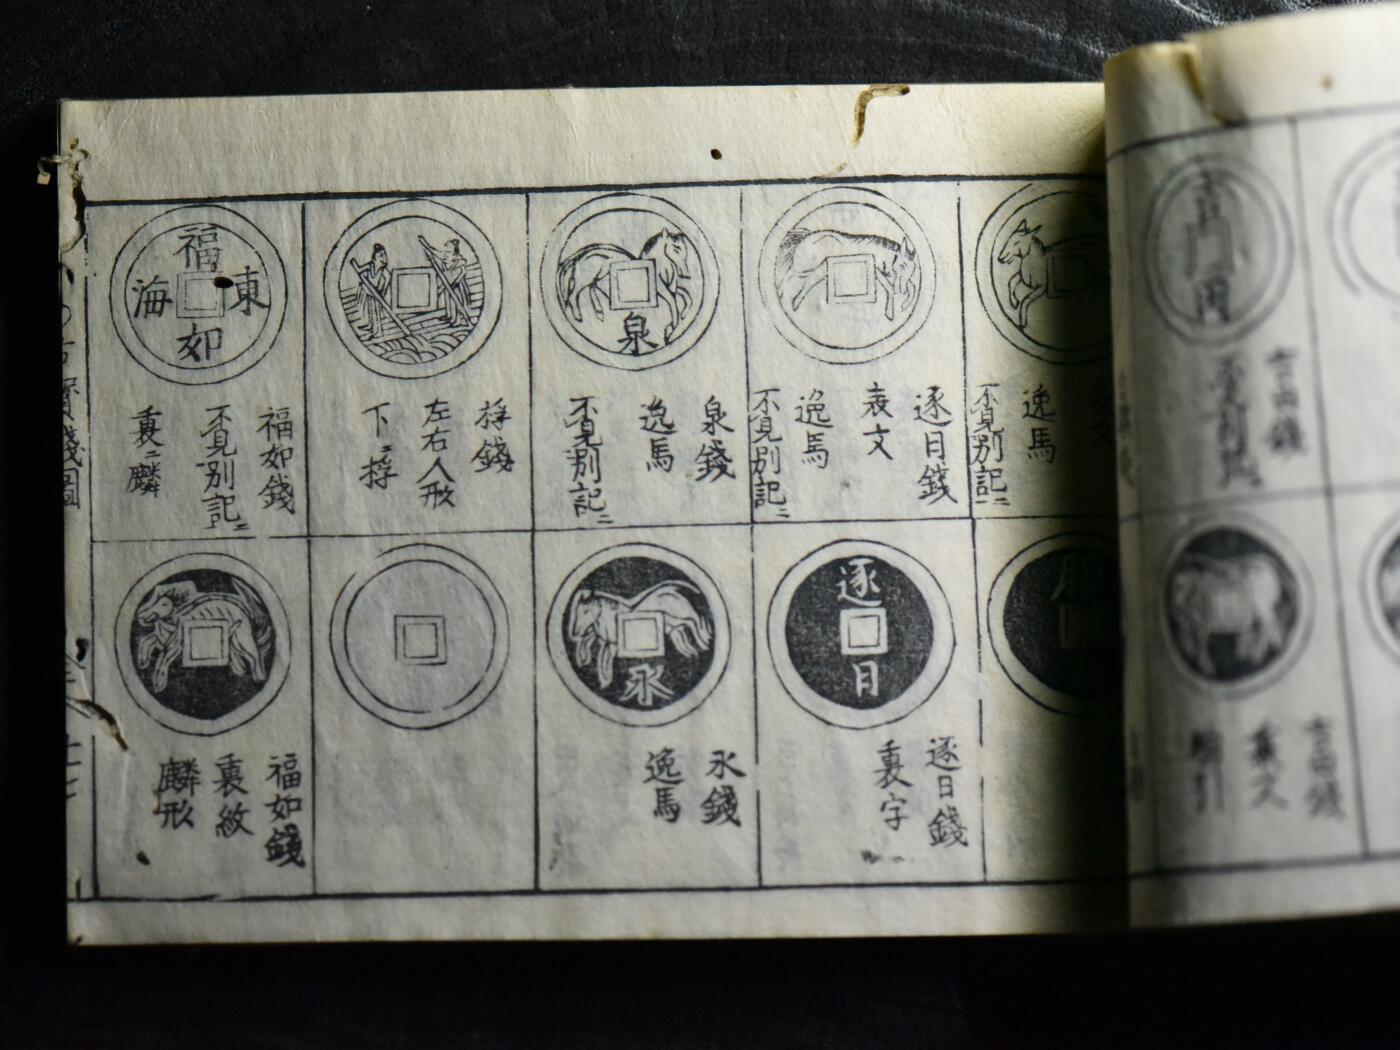 逸馬
不見別記ニ
逐日錢
表文
逸馬
不見別記ニ
泉
泉錢
逸馬
不見別記ニ
桴錢
左右人形
下ニ桴
福如東海
福如錢
不見別記ニ
裏ニ麟
逐日
逐日錢
裏字
永
永錢
逸馬
福如錢
裏紋
麟形